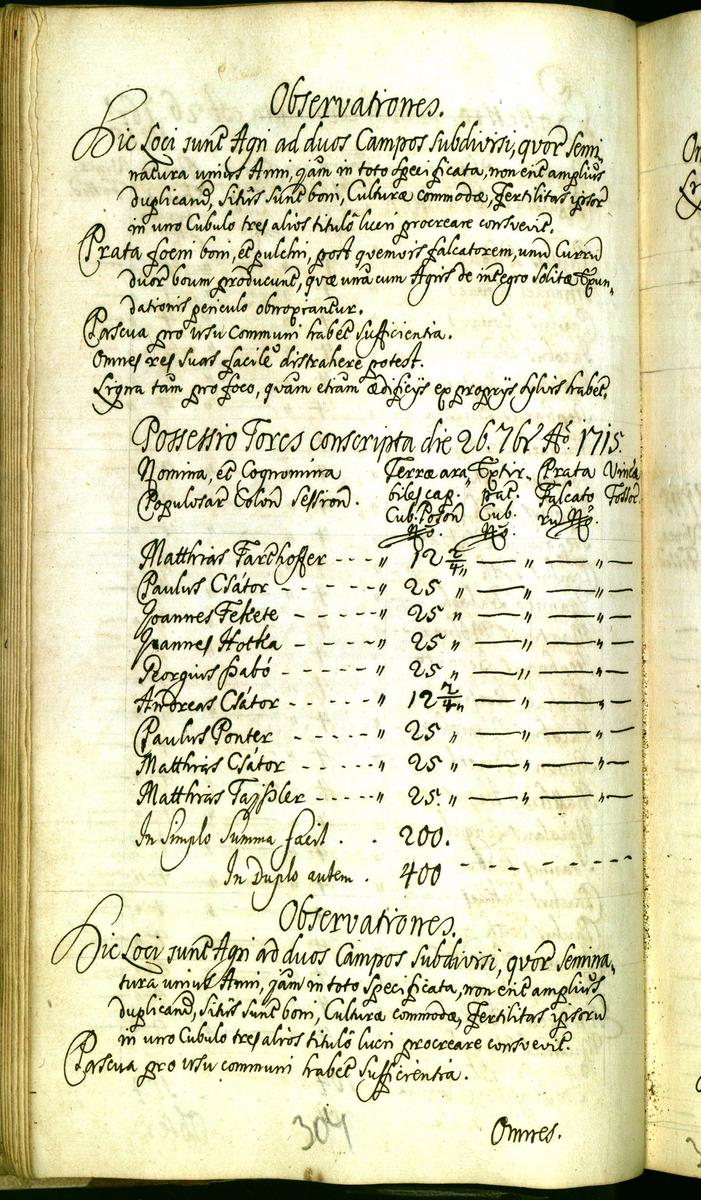 Observationes.
Hic Loci sunt Agri ad duos Campos subdivisi, quor̄ Semi-
natura unius Anni, jam in toto specificata, non erit amplius
duplicand, sitūs sunt boni, Culturæ commodæ, Fertilitas ipsor
in uno Cubulo tres alios titulô lucri procreare consvevit.
Prata foeni boni, et pulchri, post quemvis falcatorem, unū Currū
duor boum producunt, quæ unà cum Agris de integro solitæ Exun-
dationis periculo obnoxiantur.
Pascua pro usu communi habet sufficientia.
Omnes res suas facilè distrahere potest.
Ligna tàm pro foco, quàm etiam ædificijs ex proprijs sylvis habet.
Possessio Torcs conscripta die 26. 7br. Aō. 1715.
Nomina, et Cognomina Terræ ara- Extir- Prata Vinea
Populosar Colon Session. biles cap. pat. Falcato Fossor.
Cub. Poson Cub. rū No.
No. No.
Matthias Farchoffer - - - " 12 2/4 " — " — " —
Paulus Csátor - - - - - " 25 " — " — " —
Joannes Fekete - - - - - " 25 " — " — " —
Joannes Hotka - - - - - " 25 " — " — " —
Georgius Szabó - - - - - " 25 " — " — " —
Andreas Csátor - - - - - " 12 2/4 " — — " —
Paulus Ponter - - - - - " 25 " — " — " —
Matthias Csátor - - - - " 25 " — " — " —
Matthias Tajszler - - - - - " 25. " — " — " —
In Simplo Summa facit . . 200.
In Duplo autem . 400 - - - - - - - -
Observationes.
Hic Loci sunt Agri ad duos Campos subdivisi, quor̄ Semina-
tura unius Anni, jam in toto specificata, non erit amplius
duplicand, sitūs sunt boni, Culturæ commodæ, Fertilitas ipsorū
in uno Cubulo tres alios titulô lucri procreare consvevit.
Pascua pro usu communi habet sufficientia.
Omnes.
304